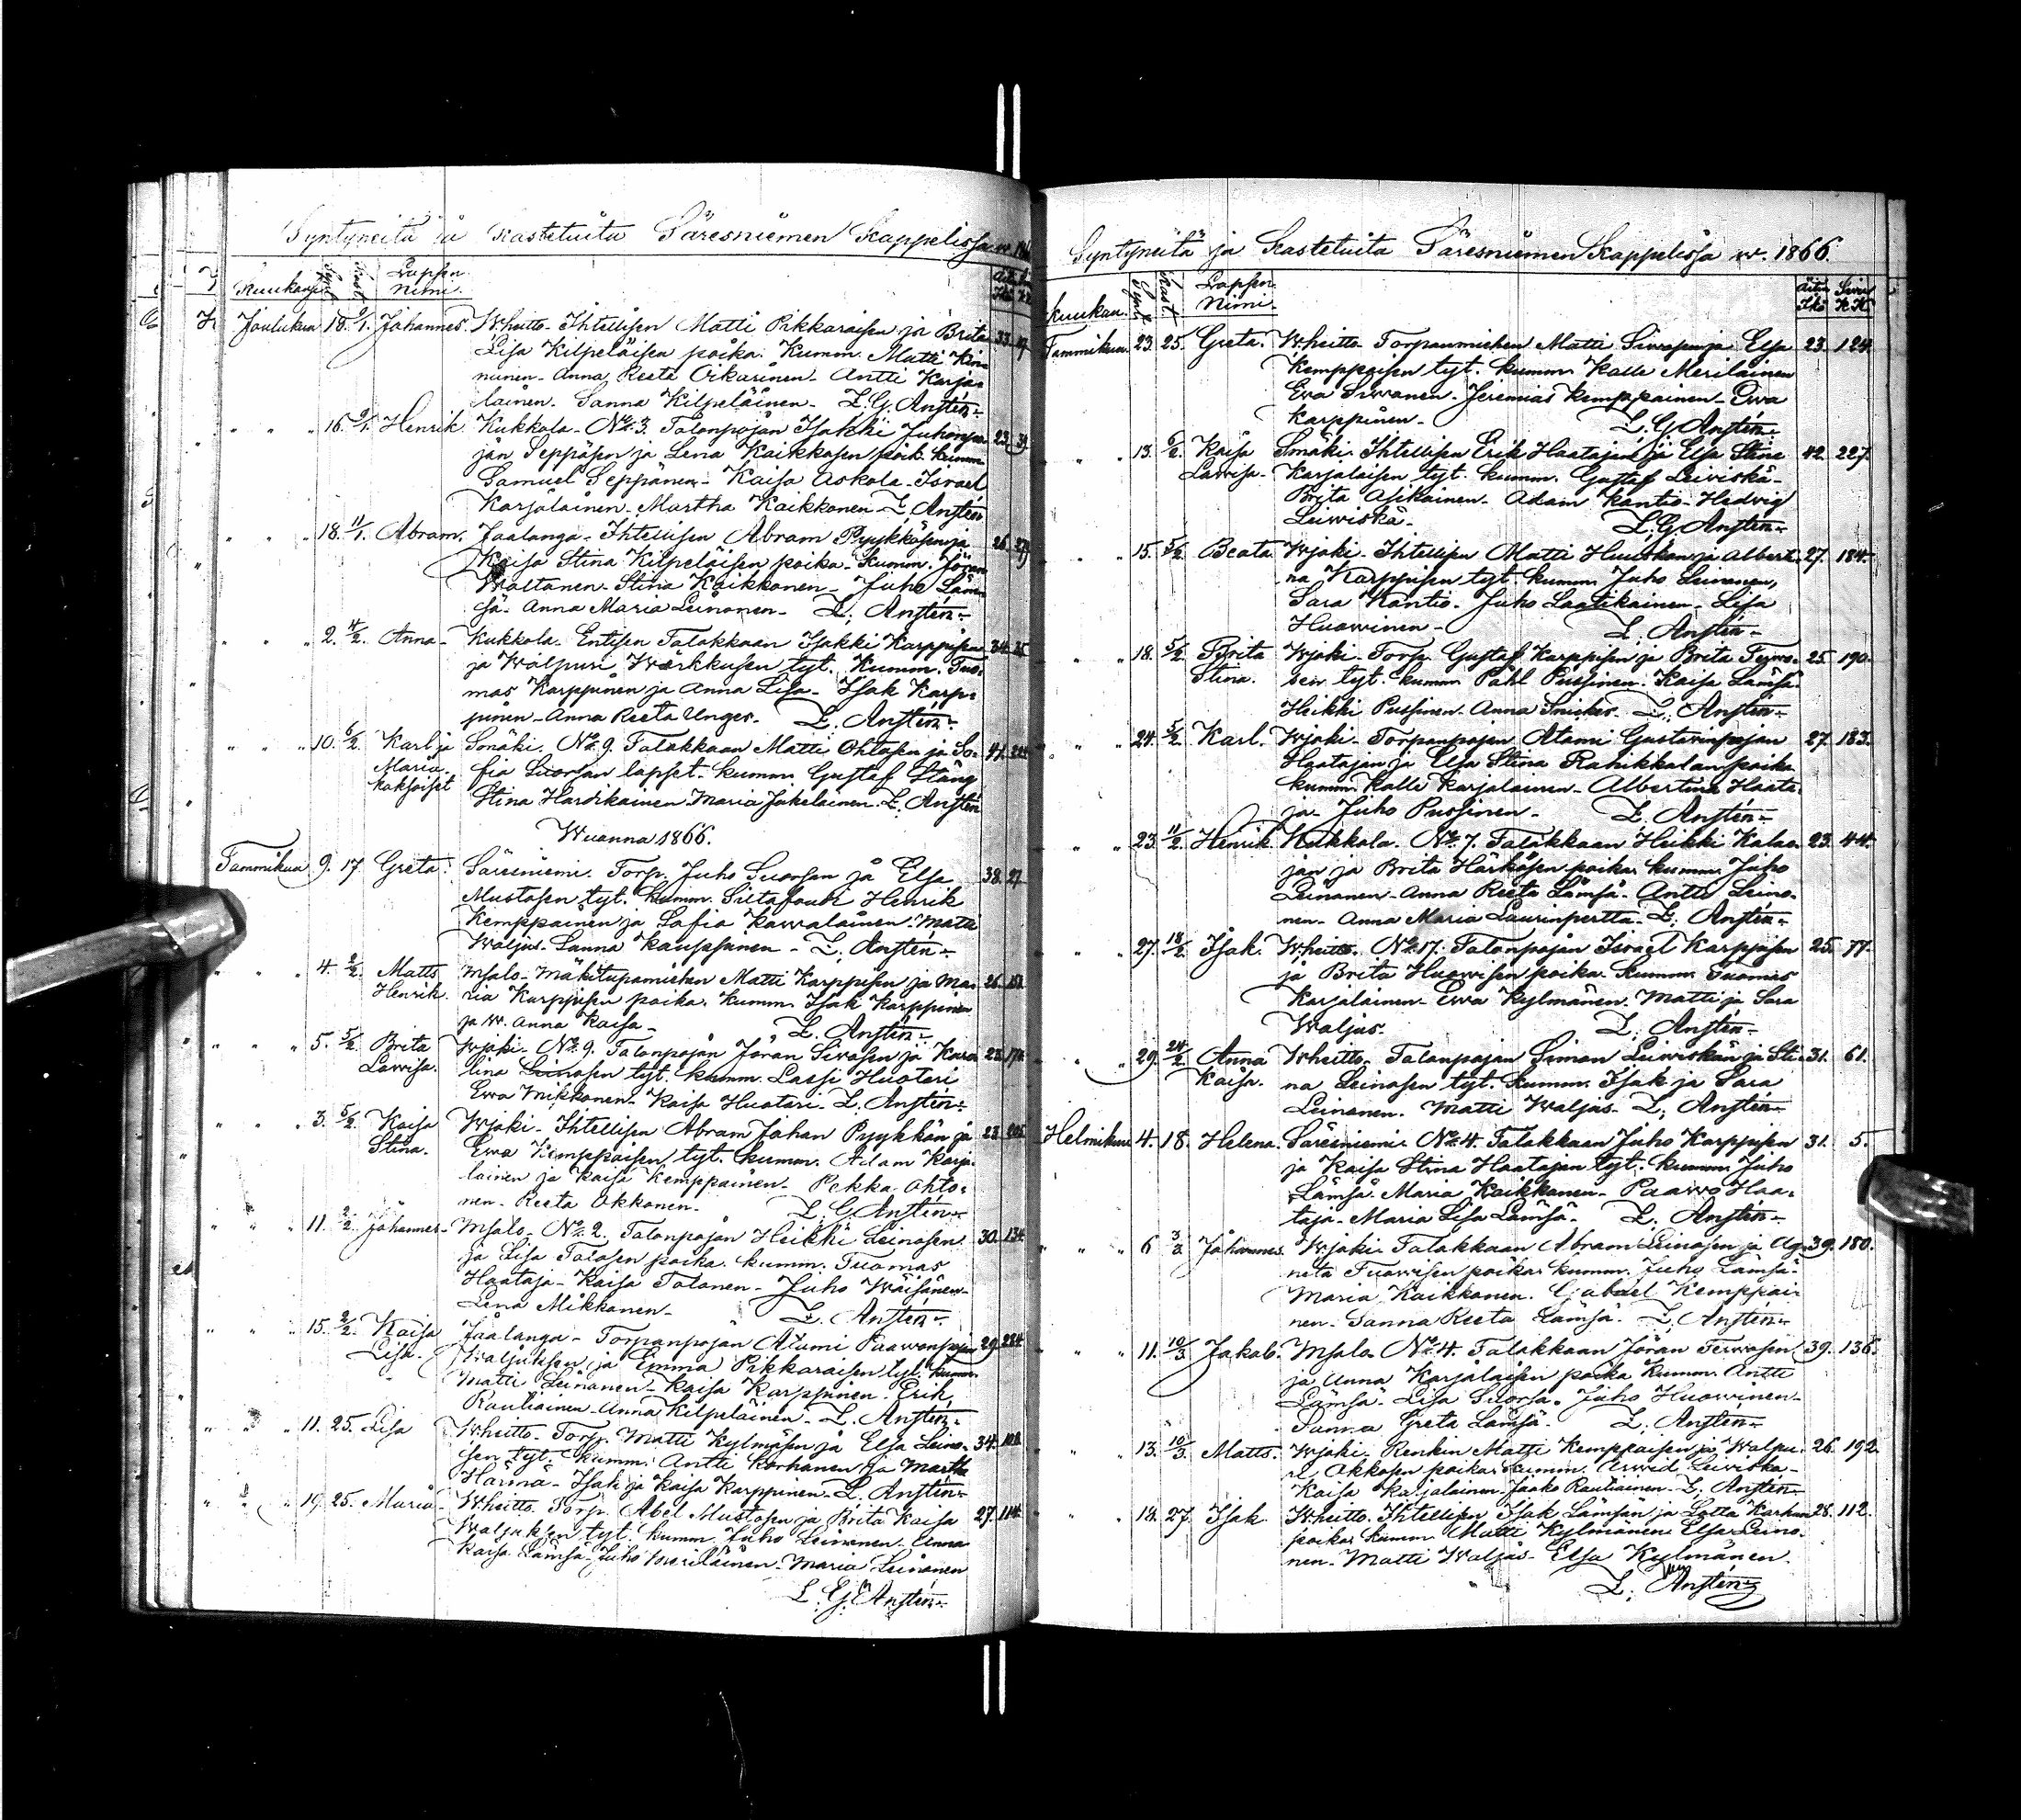 Syntyneitä ja Kastetuita Säresniemen Kappelissa w. 186
Kuukausi. Synt. Kast. Lapsen Nimi. Äit. Ikä
Joulukuu 18. 9/1. Johannes. Wheitto. Ihtellisen Matti Pikkaraisen ja Brita 33. 
Lisa Kilpeläisen poika. Kumm. Matti Kin-
nunen. Anna Reeta Oikarinen. Antti Karja-
lainen. Sanna Kilpeläinen. L. G. Anstén.
" " " 16. 9/1. Henrik. Kukkola. No 3. Talonpojan Isakki Juhonpo- 23. 39
jan Seppäsen ja Lena Kaikkosen poik. Kumm.
Samuel Seppänen. Kaisa Askola. Israel
Karjalainen. Martha Kaikkonen. L. Anstén
" " " 18. 11/1. Abram. Jaalanga. Ihtellisen Abram Pyykkösen ja 26.
Kaisa Stina Kilpeläisen poika. Kumm. Jöran
Waltanen. Stina Kaikkonen. Juho Läm-
sä. Anna Maria Leinonen. L. Anstén.
" " " 2. 4/2. Anna. Kukkola. Entisen Talakkaan Isakki Karppisen 34.
ja Walpuri Warkkusen tyt. Kumm. Tuo-
mas Karppinen ja Anna Lisa. Isak Karp-
pinen. Anna Reeta Unger. L. Anstén.
" " " 10. 6/2. Karl ja Sonäki. No 9. Talakkaan Matti Ohtosen ja So- 41.
Maria. fia Suorsan lapset. Kumm. Gustaf Stång
kaksoiset Stina Hardikainen Maria Jakelainen. L. Anstén
Wuanna 1866.
Tammikuu 9. 17. Greta. Säresniemi. Torp. Juho Suorsan ja Elsa 38. 27
Mustosen tyt. Kumm. Siltafouti Henrik
Kemppainen ja Sofia Kawalainen. Matti
Waljus. Sanna Kauppinen. L. Anstén.
" " " 4. 2/2. Matts Msalo. Mäkitupamiehen Matti Karppisen ja Ma- 26.
Henrik. ria Karppisen poika. Kumm. Isak Karppinen
ja w. Anna Kaisa. L. Anstén.
" " " 5. 5/2. Brita Wjoki. No 9. Talonpojan Jöran Siwosen ja Karo-
Lowisa. lina Leinosen tyt. Kumm. Lassi Huotari
Ewa Mikkonen. Kaisa Huotari. L. Anstén.
" " " 3. 5/2. Kaisa Wjoki. Ihtellisen Abram Johan Pyykkön ja 23.
Stina. Ewa Kemppaisen tyt. Kumm. Adam Karja-
lainen ja Kaisa Kemppainen. Pekka Ohto-
nen. Reeta Okkonen. L. G. Anstén.
" " " 11. 2/2. Johannes. Msalo. No 2. Talonpojan Heikki Leinosen 30. 134
ja Lisa Tolosen poika. Kumm. Tuomas
Haataja. Kaisa Tolonen. Juho Wäisänen.
Lena Mikkonen. L. Anstén.
" " " 15. 2/2. Kaisa Jaalanga. Torpanpojan Atami Paawonpojan 29. 284
Lisa. Waljuksen ja Emma Pikkaraisen tyt. Kumm.
Matti Leinonen. Kaisa Karppinen. Erik
Rautiainen. Anna Kilpeläinen. L. Anstén.
" " " 11. 25. Lisa Wheitto. Torp. Matti Kylmäsen ja Elsa Leino- 34. 108
sen tyt. Kumm. Antti Korhonen ja Martha
Härmä. Isak ja Kaisa Karppinen. L. Anstén.
" " " 19. 25. Maria. Wheitto. Torp. Abel Mustosen ja Brita Kaisa 27. 114.
Waljuksen tyt. Kumm. Juho Leinonen. Anna
Kaisa Lämsä. Juho Meriläinen. Maria Leinonen
L. G. Anstén.
Syntyneitä ja Kastetuita Säresniemen Kappelissa w. 1866.
Kuukau. Synt. Kast. Lapsen Nimi. Äitin Ikä Siwu K.K.
Tammikuu. 23. 25. Greta. Wheitto. Torpanmiehen Matti Siwosen ja Elsa 23. 124.
Kemppaisen tyt. Kumm. Kalle Meriläinen
Ewa Siwonen. Jeremias Kemppainen. Ewa
Karppinen. L. G. Anstén.
" " 13. 6/2. Kaisa Smäki. Ihtellisen Erik Haatajan ja Elsa Stina 42. 227.
Lowisa. Karjalaisen tyt. Kumm. Gustaf Leiwiskä.
Brita Asikainen. Adam Kantio. Hedvig
Leiwiskä. L. G. Anstén.
" " 15. 5/2. Beata. Wjoki. Ihtellisen Matti Huuskon ja Alberti- 27. 184.
na Karppisen tyt. Kumm. Juho Leinonen,
Sara Kantio. Juho Laatikainen. Lisa
Huowinen. L. Anstén.
" " 18. 5/2. Brita Wjoki. Torp. Gustaf Karppisen ja Brita Terwo- 25. 190.
Stina. sen tyt. Kumm. Påhl Pussinen. Kaisa Lämsä.
Heikki Pussinen. Anna Snicker. L. Anstén.
" " 24. 5/2. Karl. Wjoki. Torpanpojan Atami Gustavinpojan 27. 183.
Haatajan ja Elsa Stina Rahikkalan poika
Kumm. Kalle Karjalainen. Albertina Haata-
ja. Juho Pussinen. L. Anstén.
" " 23. 11/2. Henrik. Kukkola. No 7. Talakkaan Heikki Kalao- 23. 44.
jan ja Brita Härkösen poika. Kumm. Juho
Leinonen. Anna Reeta Lämsä. Antti Leino-
nen. Anna Maria Laurinpertta. L. Anstén.
" " 27. 18/2. Isak. Wheitto. No 17. Talonpojan Israel Karppisen 25. 77.
ja Brita Huowisen poika. Kumm. Tuomas
Karjalainen. Ewa Kylmänen. Matti ja Sara
Waljus. L. Anstén.
" " 29. 24/2. Anna Wheitto. Talonpojan Simon Leiwiskän ja Sti- 31. 61.
Kaisa. na Leinosen tyt. Kumm. Isak ja Sara
Leinonen. Matti Waljus. L. Anstén.
Helmikuu 4. 18. Helena. Säresniemi. No 4. Talakkaan Juho Karppisen 31. 5.
ja Kaisa Stina Haatajan tyt. Kumm. Juho
Lämsä. Maria Kaikkonen. Paawo Haa-
taja. Maria Lisa Lämsä. L. Anstén.
" " 6 3/3 Johannes. Wjoki. Talakkaan Abram Leinosen ja Ag- 39. 180.
neta Tuowisen poika. Kumm. Juho Lämsä.
Maria Kaikkonen. Gabriel Kemppai-
nen. Sanna Reeta Lämsä. L. Anstén.
" " 11. 10/3. Jakob. Msalo. No 4. Talakkaan Jöran Terwosen 39. 136.
ja Anna Karjalaisen poika Kumm. Antti
Lämsä. Lisa Suorsa. Juho Huowinen.
Sanna Greta Lämsä. L. Anstén.
" " 13. 10/3. Matts. Wjoki. Renkin Matti Kemppaisen ja Walpu- 26. 192.
ri Okkosen poika. Kumm. Arwid Leiwiskä.
Kaisa Karjalainen. Jaako Rautiainen. L. Anstén.
" " 14. 27. Isak. Wheitto. Ihtellisen Isak Lämsän ja Lotta Korhon 28. 112.
poika. Kumm. Matti Kylmänen. Elsa Leino-
nen. Matti Waljus. Elsa Kylmänen.
L. Anstén